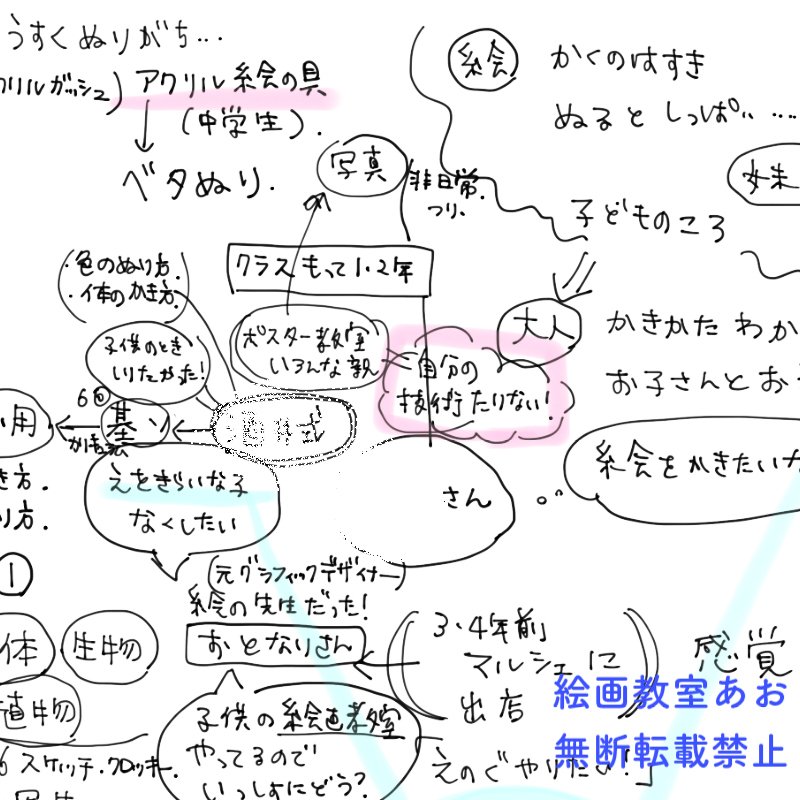 うすくぬりがち…
クリルガッシュ) アクリル絵会の具
(中学生).
↓
ベタぬり.
絵会
かくのはすき
ぬるとしっぱい……
妹
写真
非日常.
つり.
子どものころ
クラスもって1.2年
・色のぬり方.
・体のかき方.
子供のとき
しりたかった!
ポスター教室
いろんな親
自分の
技術たりない!
大人
かきかた わか
お子さんとお
6回
基
用
えをきらいな子
なくしたい
さん
絵会をかきたいな
き方.
り方.
1
(元グラフィックデザイナー)
絵会の先生だった!
おとなりさん
3・4年前
マルシェに
出店
感覚
体
生物
植物
子供の絵会画教室
やってるので
いっしょにどう?
えのぐやりたい!」
6 スケッチ・クロッキー.
絵画教室あお
無断転載禁止